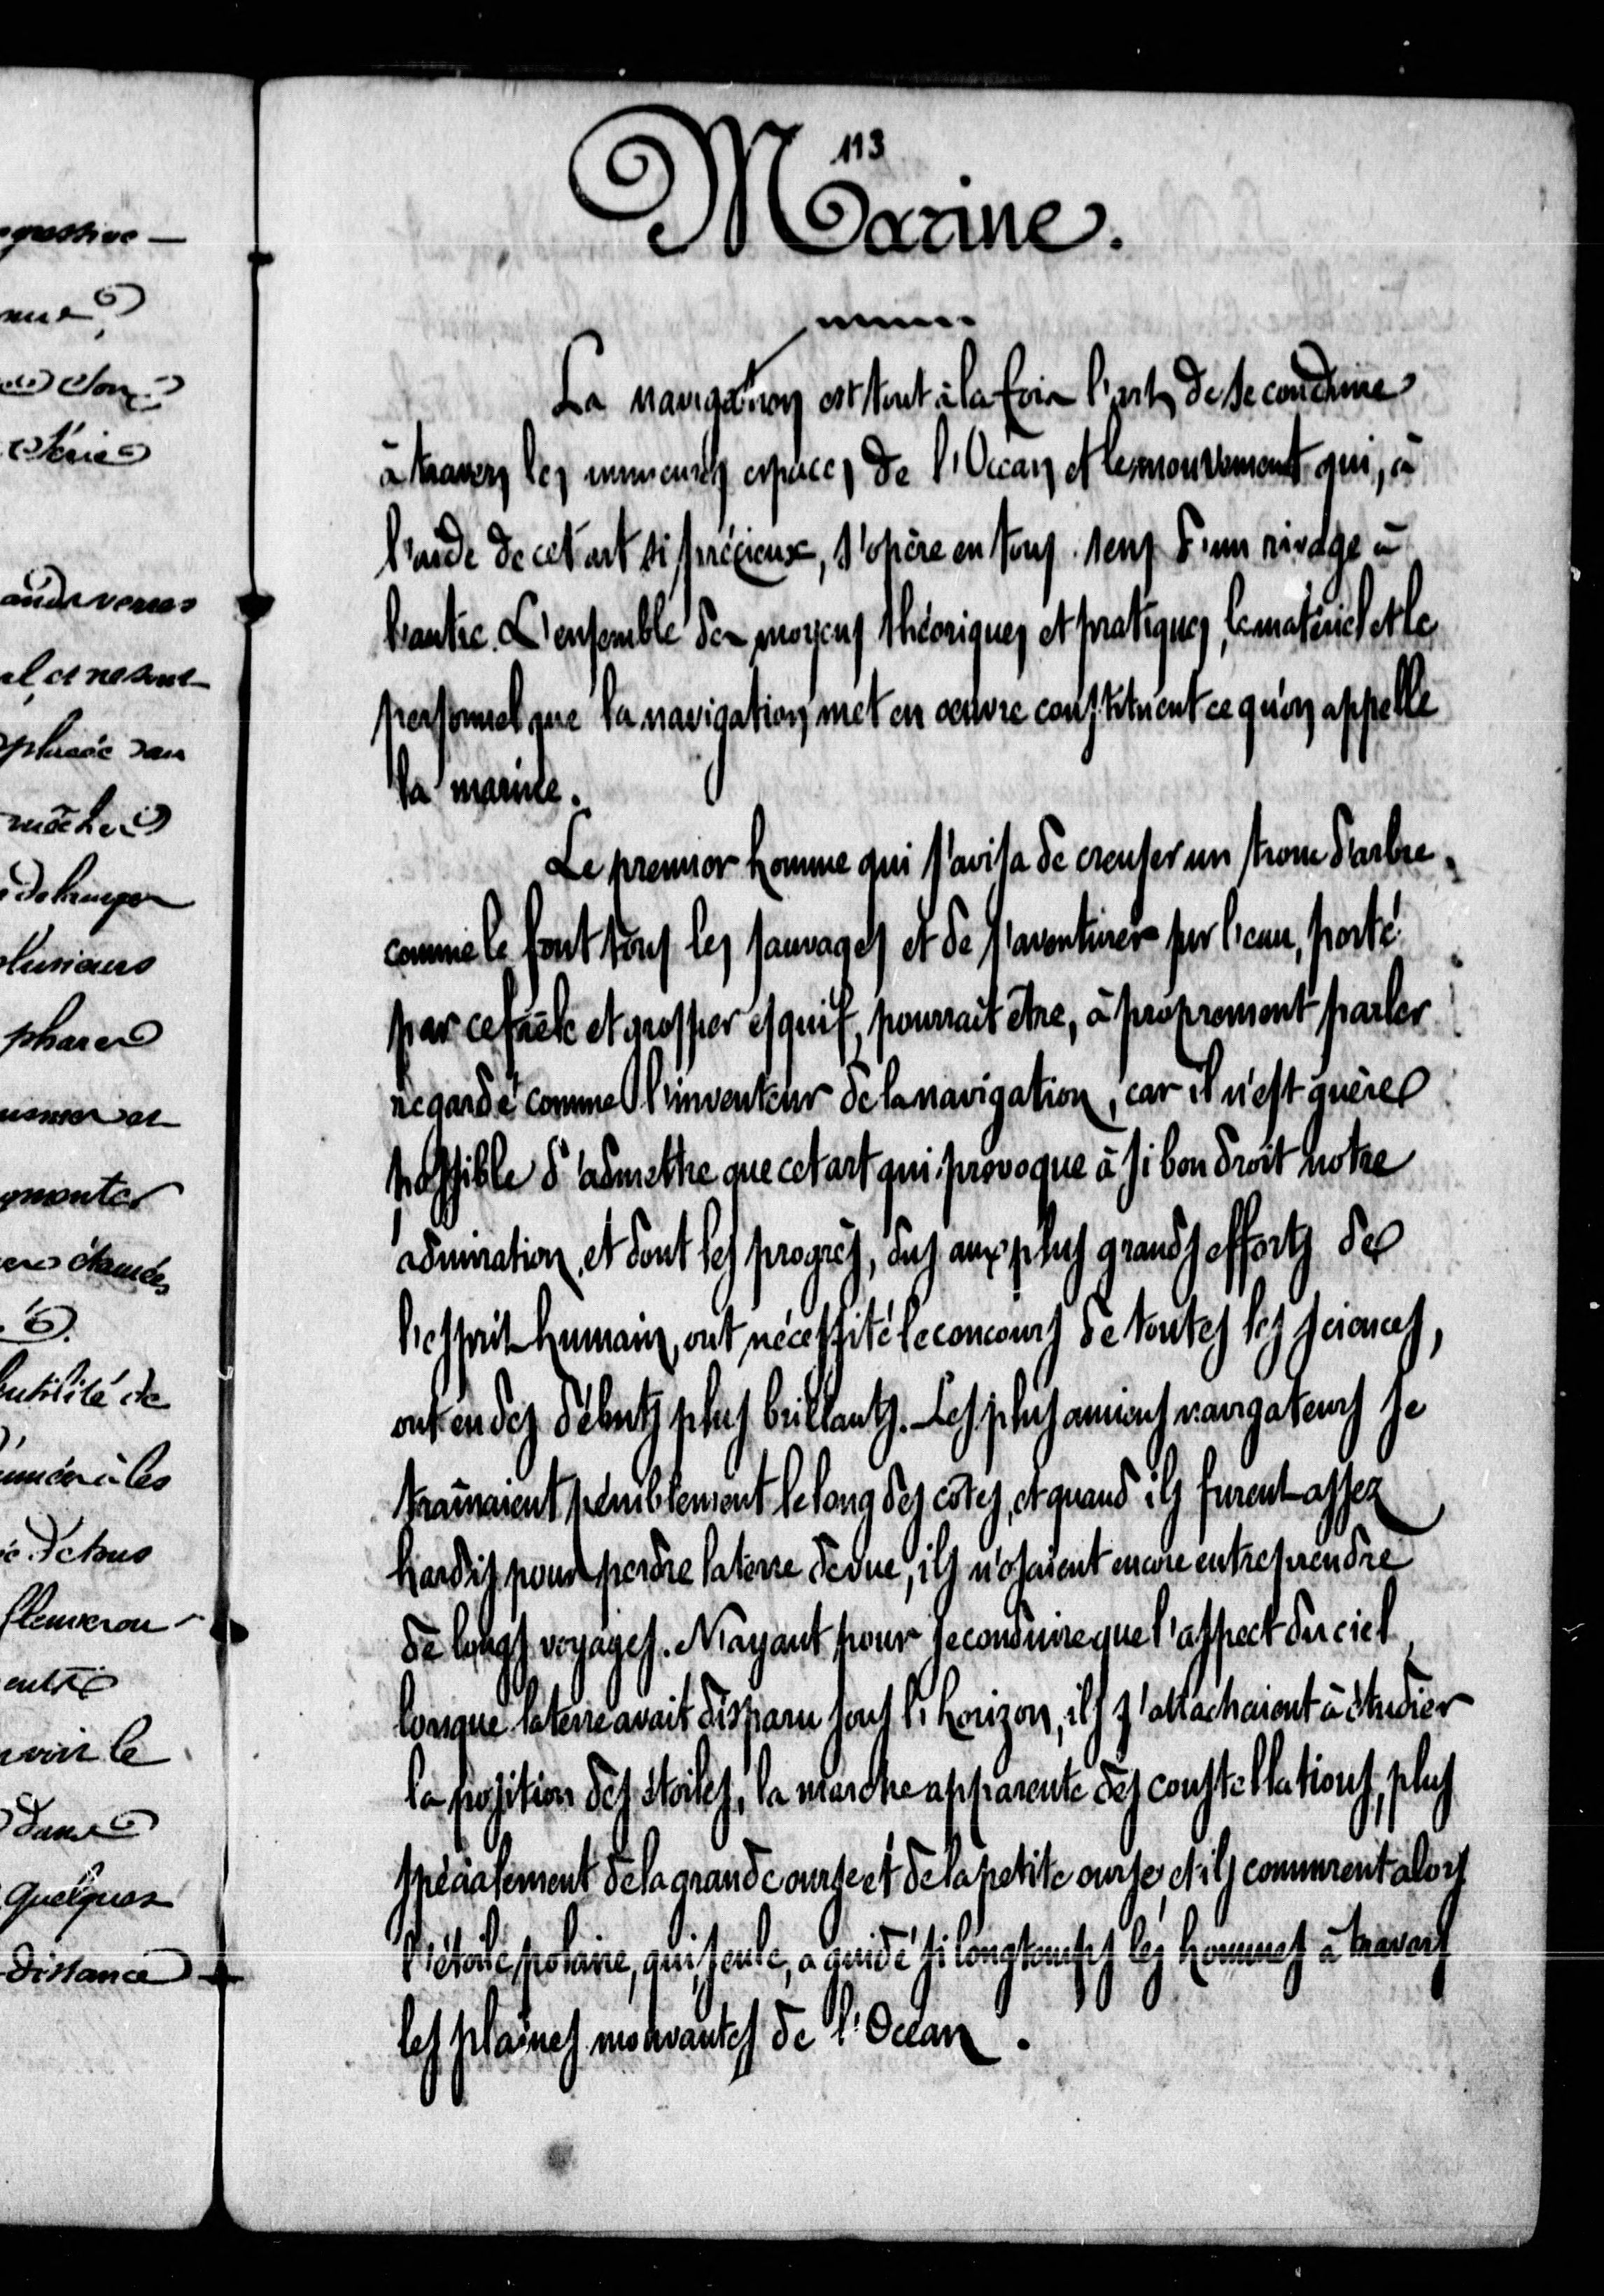 gressive —
nue
et son
série
andes verres
al et ne sont
placée dans
mèches
de changer
plusieurs
phares
monter
étamées
l'utilité de
numérà les
é d'abus
fleuve ou
entre
voir le
dans
quelques
distance
113
Marine.
La navigation est tout à la fois l'art de se conduire
à travers les immenses espaces de l'Océan et le mouvement qui, à
l'aide de cet art si précieux, s'opère en tous sens d'un rivage à
l'autre. L'ensemble des moyens théoriques et pratiques, le matériel et le
personnel que la navigation met en oeuvre constituent ce qu'on appelle
la marine.
Le premier homme qui s'avisa de creuser un tronc d'arbre
comme le font tous les sauvages et de s'aventurer sur l'eau, porté
par ce frêle et grossier esquif, pourrait être, à proprement parler
regardé comme l'inventeur de la navigation, car il n'est guère
possible d'admettre que cet art qui provoque à si bon droit notre
admiration, et dont les progrès, dus aux plus grands efforts de
l'esprit humain, ont nécessité le concours de toutes les sciences,
ont eu des débuts plus brillants. Les plus anciens navigateurs se
traînaient péniblement le long des côtes, et quand ils furent assez
hardis pour perdre la terre de vue, ils n'osaient encore entreprendre
de longs voyages. N'ayant pour se conduire que l'aspect du ciel,
lorsque la terre avait disparu sous l'horizon, ils s'attachaient à étudier
la position des étoiles, la marche apparente des constellations, plus
spécialement de la grande ourse et de la petite ourse, et ils connurent alors
l'étoile polaire, qui, seule, a guidé si longtemps les hommes à travers
les plaines mouvantes de l'Océan.